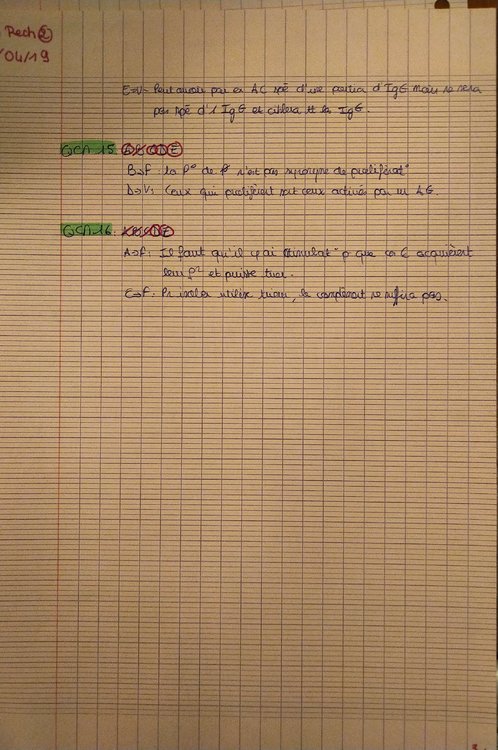 Rech 2
/04/19
E→V: Peut avoir par ex AC spé d'une partie d'IgG mais ne sera
pas spé d'1 IgG et ciblera tt les IgG.
QCM 15 : ABCDE
B→F : la P° de n'est pas synonyme de proliférat°
D→V : Ceux qui prolifèrent sont ceux activés par un AG.
QCM 16 : ABCDE
A→F : Il faut qu'il y ai stimulat° p que ces C acquièrent
leur f° et puisse tuer.
E→F : Pr isoler utilise le complément ne suffire pas.